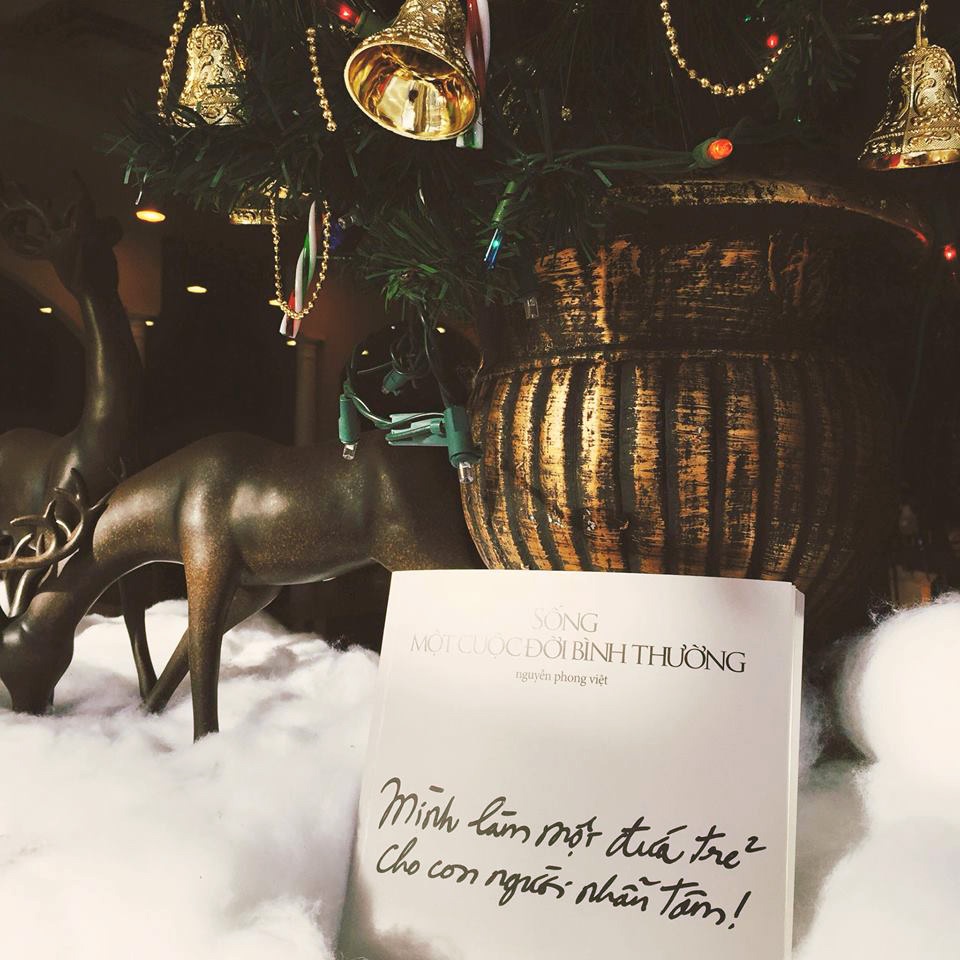 SỐNG
MỘT CUỘC ĐỜI BÌNH THƯỜNG
nguyễn phong việt
Mình làm một đứa trẻ
cho con người nhẫn tâm!